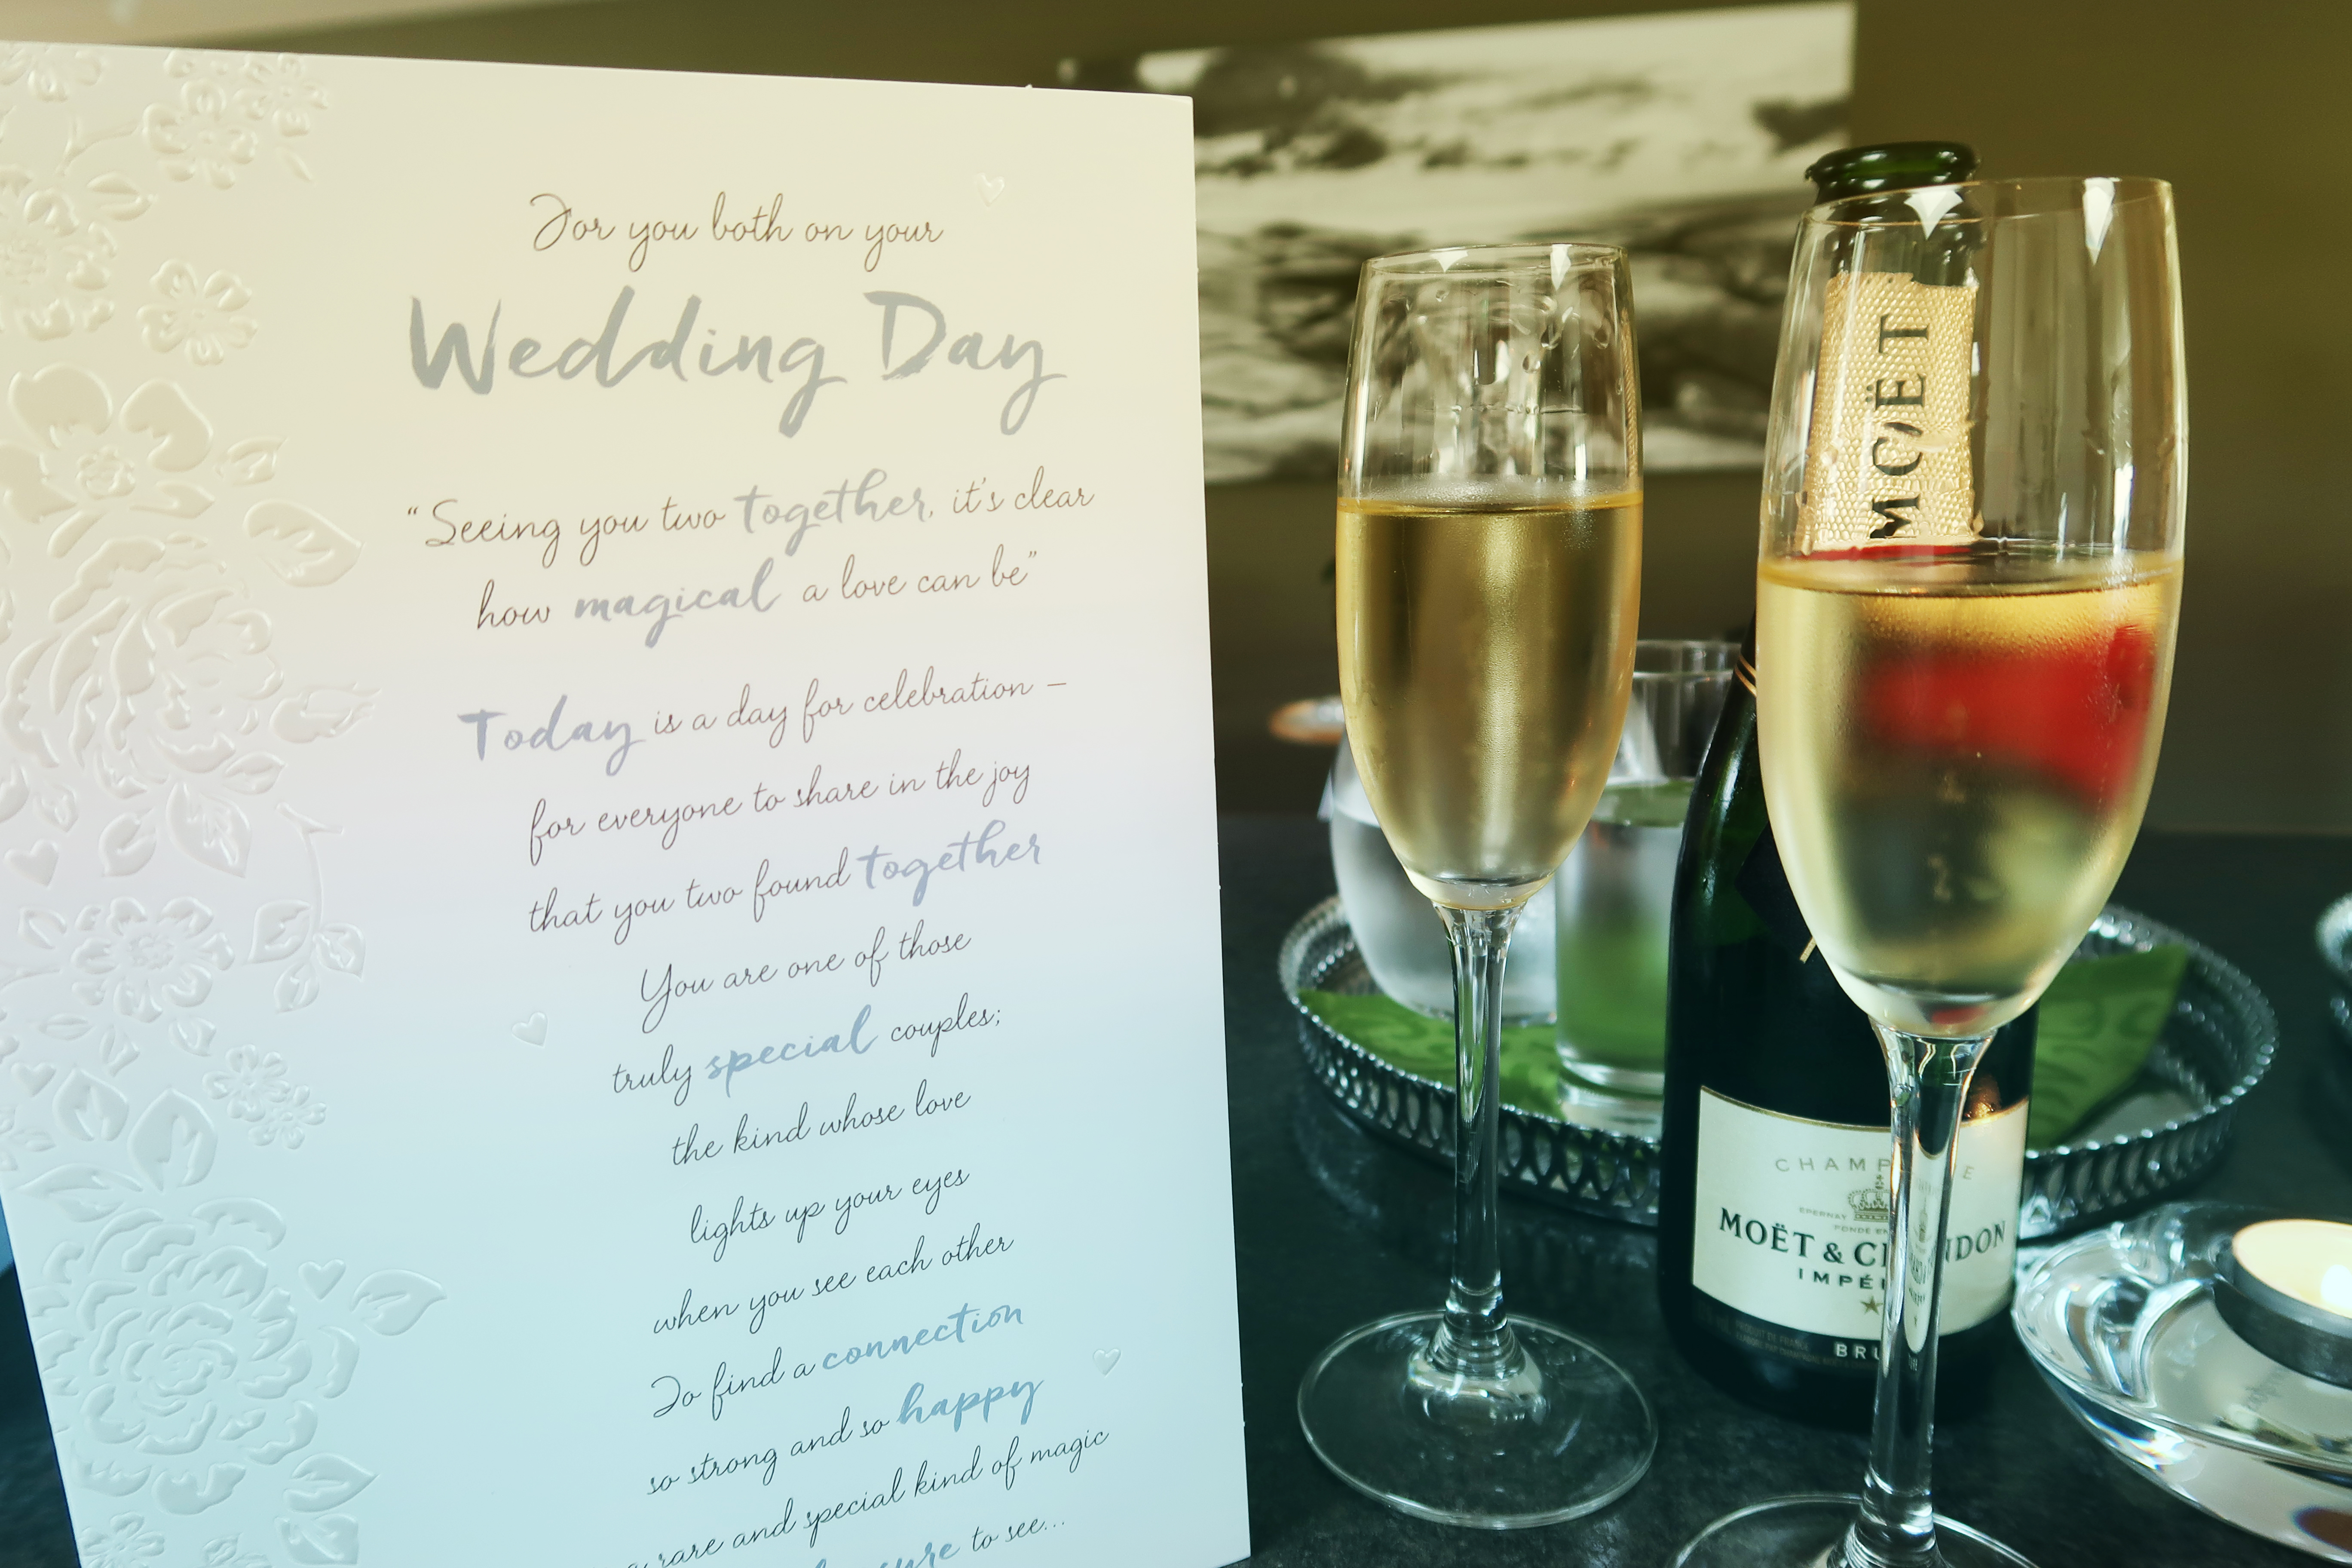 For you both on your
Wedding Day
“Seeing you two together, it's clear
how magical a love can be”
Today is a day for celebration –
for everyone to share in the joy
that you two found together
You are one of those
truly special couples;
the kind whose love
lights up your eyes
when you see each other
To find a connection
so strong and so happy
a rare and special kind of magic
to see...
MOËT
MOËT &
BRU